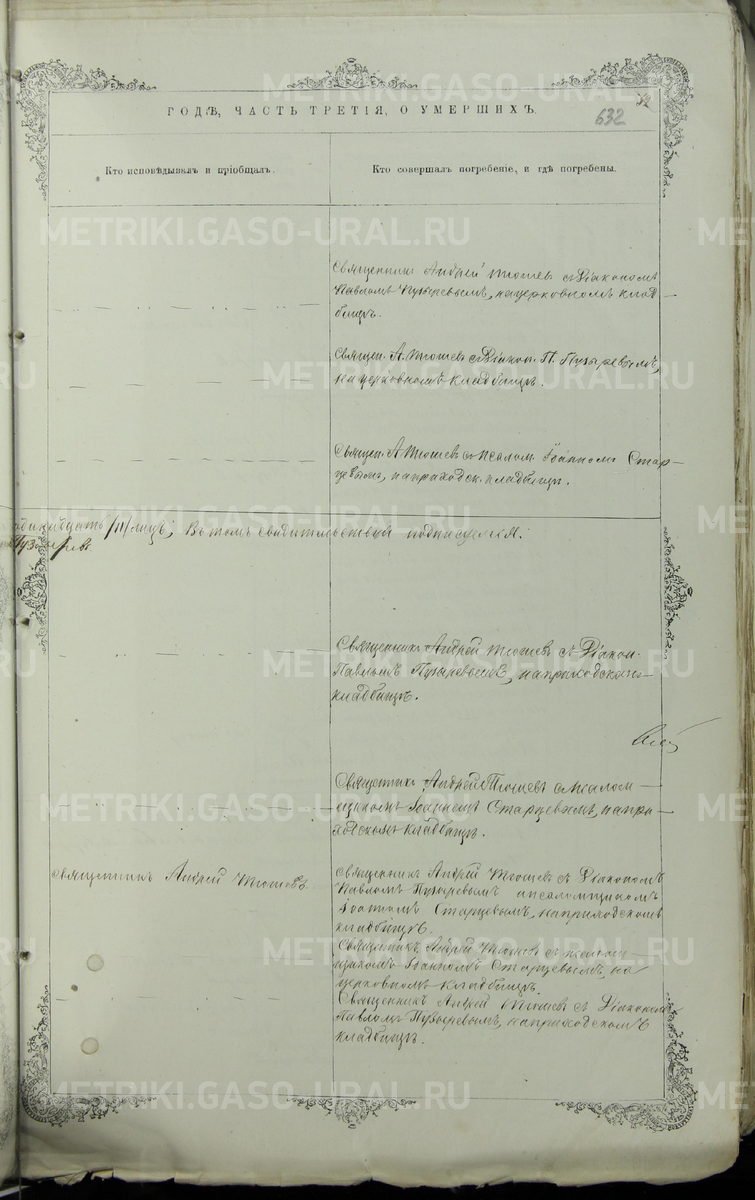 ГОДѢ, ЧАСТЬ ТРЕТІЯ, О УМЕРШИХЪ.
632
Кто исповѣдывалъ и пріобщалъ.
Кто совершалъ погребеніе, и гдѣ погребены.
Священникъ Андрей Тюшевъ съ Діакономъ
Павломъ Пузыревымъ, на церковномъ клад
бищѣ.
Священ. А. Тюшевъ съ Діакон. П. Пузыревымъ,
на церковномъ кладбищѣ.
Священ. А. Тюшевъ съ псалом. Іоанномъ Стар-
цевымъ, на приходск. кладбищѣ.
/11/ лицъ; Въ томъ свидѣтельствуя подписуемся:
Священникъ Андрей Тюшевъ съ Діакон.
Павломъ Пузыревымъ, на приходскомъ
кладбищѣ.
Священникъ Андрей Тюшевъ съ псалом-
щикомъ Іоанномъ Старцевымъ, на при-
ходскомъ кладбищѣ.
Священникъ Андрей Тюшевъ
Священникъ Андрей Тюшевъ съ Діакономъ
Павломъ Пузыревымъ и псаломщикомъ
Іоанномъ Старцевымъ, на приходскомъ
кладбищѣ.
Священникъ Андрей Тюшевъ съ псалом-
щикомъ Іоанномъ Старцевымъ, на
церковномъ кладбищѣ.
Священникъ Андрей Тюшевъ съ Діакономъ
Павломъ Пузыревымъ, на приходскомъ
кладбищѣ.
METRIKI.GASO-URAL.RU